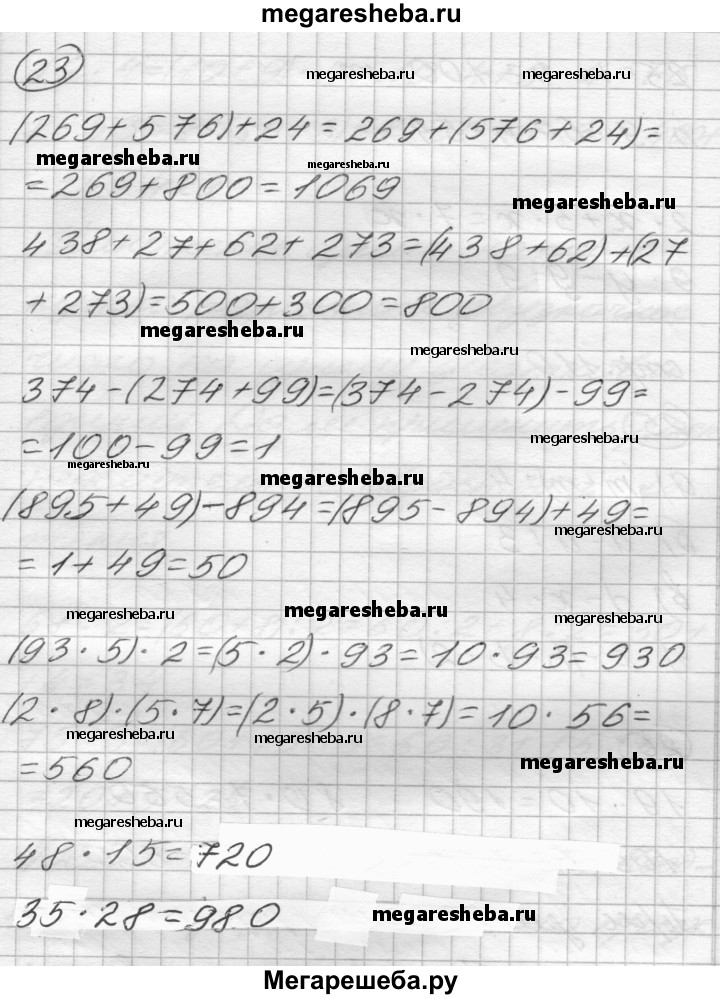 megaresheba.ru
23
megaresheba.ru megaresheba.ru
(269+576)+24=269+(576+24)=
megaresheba.ru megaresheba.ru
=269+800=1069
megaresheba.ru
438+27+62+273=(438+62)+(27
+273)=500+300=800
megaresheba.ru
megaresheba.ru
374-(274+99)=(374-274)-99=
=100-99=1
megaresheba.ru
megaresheba.ru
megaresheba.ru
(895+49)-894=(895-894)+49=
megaresheba.ru
=1+49=50
megaresheba.ru megaresheba.ru megaresheba.ru
(93·5)·2=(5·2)·93=10·93=930
(2·8)·(5·7)=(2·5)·(8·7)=10·56=
megaresheba.ru megaresheba.ru
=560
megaresheba.ru
megaresheba.ru
48·15=720
35·28=980
megaresheba.ru
Мегарешеба.ру